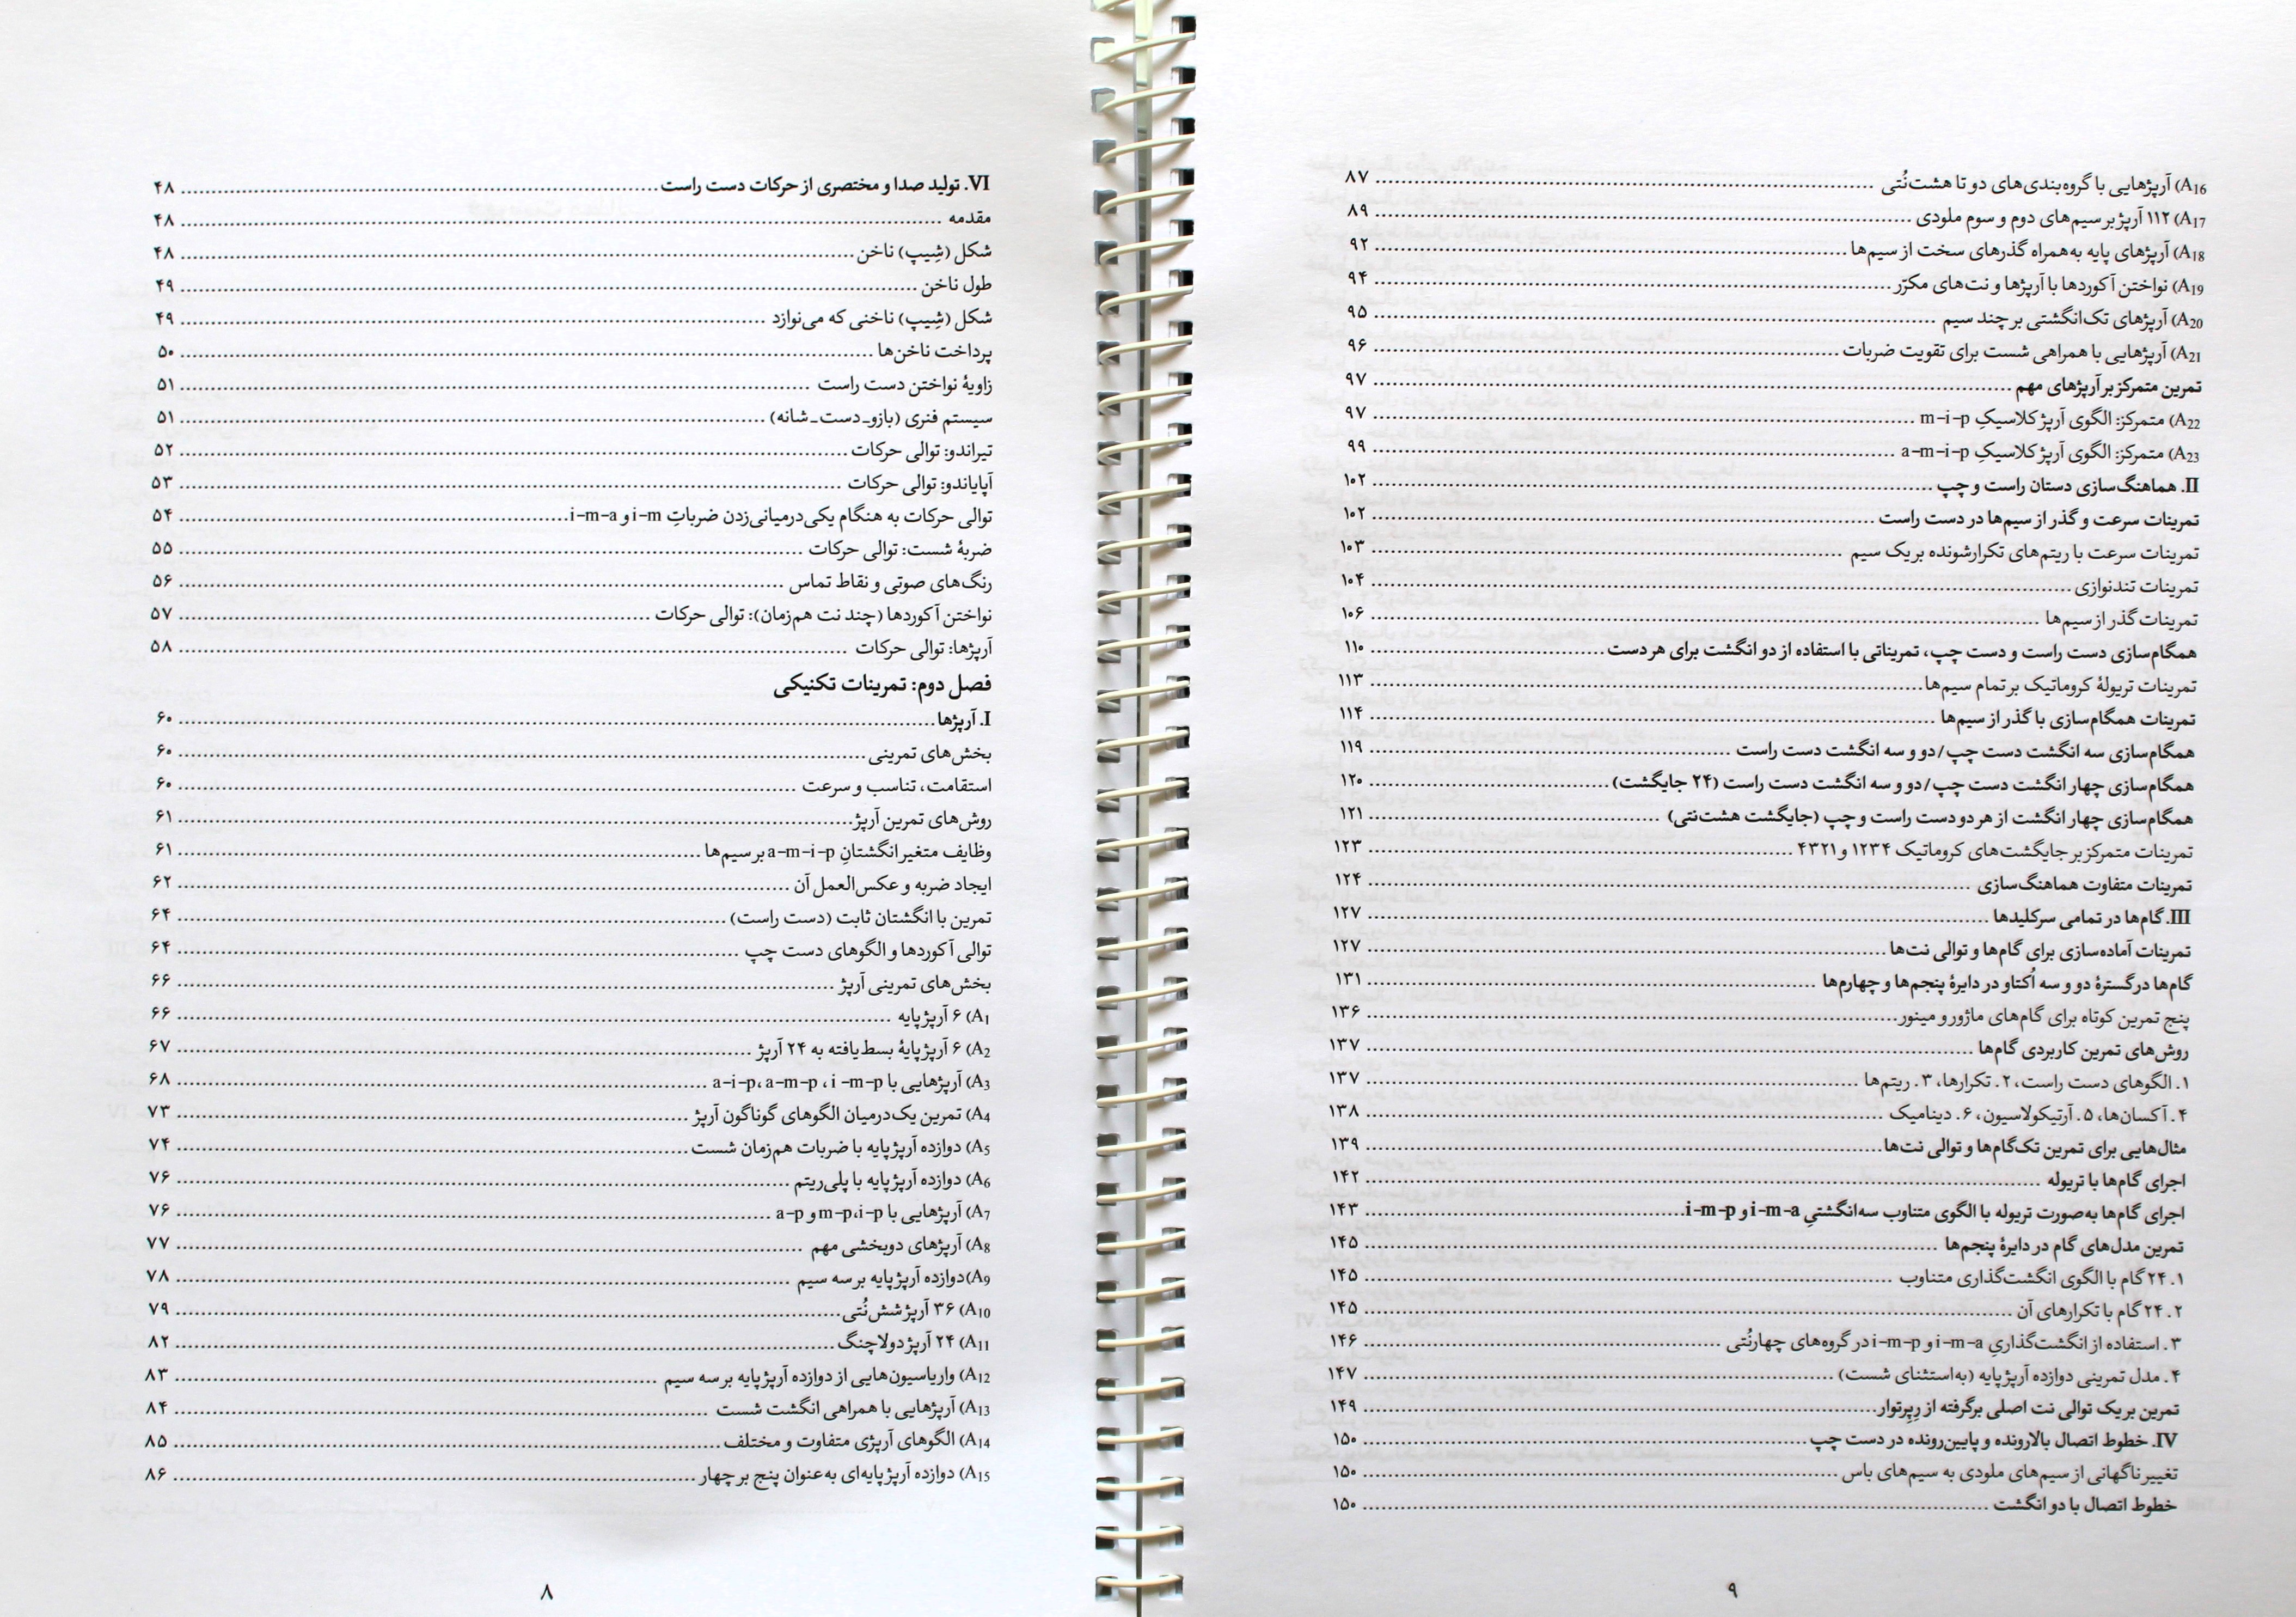 VI. تولید صدا و مختصری از حرکات دست راست ........ ۴۸
مقدمه ........ ۴۸
شکل (شِیپ) ناخن ........ ۴۸
طول ناخن ........ ۴۹
شکل (شِیپ) ناخنی که می‌نوازد ........ ۴۹
پرداخت ناخن‌ها ........ ۵۰
زاویهٔ نواختن دست راست ........ ۵۱
سیستم فنری (بازو_دست_شانه) ........ ۵۱
تیراندو: توالی حرکات ........ ۵۲
آپایاندو: توالی حرکات ........ ۵۳
توالی حرکات به هنگام یکی‌درمیانی‌زدن ضرباتِ i-m و i-m-a ........ ۵۴
ضربهٔ شست: توالی حرکات ........ ۵۵
رنگ‌های صوتی و نقاط تماس ........ ۵۶
نواختن آکوردها (چند نت هم‌زمان): توالی حرکات ........ ۵۷
آرپژها: توالی حرکات ........ ۵۸
فصل دوم: تمرینات تکنیکی
I. آرپژها ........ ۶۰
بخش‌های تمرینی ........ ۶۰
استقامت، تناسب و سرعت ........ ۶۰
روش‌های تمرین آرپژ ........ ۶۱
وظایف متغیر انگشتانِ a-m-i-p بر سیم‌ها ........ ۶۱
ایجاد ضربه و عکس‌العمل آن ........ ۶۲
تمرین با انگشتان ثابت (دست راست) ........ ۶۴
توالی آکوردها و الگوهای دست چپ ........ ۶۴
بخش‌های تمرینی آرپژ ........ ۶۶
A1) ۶ آرپژ پایه ........ ۶۶
A2) ۶ آرپژ پایهٔ بسط‌یافته به ۲۴ آرپژ ........ ۶۷
A3) آرپژهایی با i -m-p ،a-m-p ،a-i-p ........ ۶۸
A4) تمرین یک‌درمیان الگوهای گوناگون آرپژ ........ ۷۳
A5) دوازده آرپژ پایه با ضربات هم‌زمان شست ........ ۷۴
A6) دوازده آرپژ پایه با پلی‌ریتم ........ ۷۶
A7) آرپژهایی با m-p،i-p و a-p ........ ۷۶
A8) آرپژهای دوبخشی مهم ........ ۷۷
A9) دوازده آرپژ پایه بر سه سیم ........ ۷۸
A10) ۳۶ آرپژ شش‌نُتی ........ ۷۹
A11) ۲۴ آرپژ دولاچنگ ........ ۸۲
A12) واریاسیون‌هایی از دوازده آرپژ پایه بر سه سیم ........ ۸۳
A13) آرپژهایی با همراهی انگشت شست ........ ۸۴
A14) الگوهای آرپژی متفاوت و مختلف ........ ۸۵
A15) دوازده آرپژ پایه‌ای به‌عنوان پنج بر چهار ........ ۸۶
۸
A16) آرپژهایی با گروه‌بندی‌های دو تا هشت‌نُتی ........ ۸۷
A17) ۱۱۲ آرپژ بر سیم‌های دوم و سوم ملودی ........ ۸۹
A18) آرپژهای پایه به‌همراه گذرهای سخت از سیم‌ها ........ ۹۲
A19) نواختن آکوردها با آرپژها و نت‌های مکرّر ........ ۹۴
A20) آرپژهای تک‌انگشتی بر چند سیم ........ ۹۵
A21) آرپژهایی با همراهی شست برای تقویت ضربات ........ ۹۶
تمرین متمرکز بر آرپژهای مهم ........ ۹۷
A22) متمرکز: الگوی آرپژ کلاسیکِ m-i-p ........ ۹۷
A23) متمرکز: الگوی آرپژ کلاسیکِ a-m-i-p ........ ۹۹
II. هماهنگ‌سازی دستان راست و چپ ........ ۱۰۲
تمرینات سرعت و گذر از سیم‌ها در دست راست ........ ۱۰۲
تمرینات سرعت با ریتم‌های تکرارشونده بر یک سیم ........ ۱۰۳
تمرینات تندنوازی ........ ۱۰۴
تمرینات گذر از سیم‌ها ........ ۱۰۶
همگام‌سازی دست راست و دست چپ، تمریناتی با استفاده از دو انگشت برای هر دست ........ ۱۱۰
تمرینات تریولهٔ کروماتیک بر تمام سیم‌ها ........ ۱۱۳
تمرینات همگام‌سازی با گذر از سیم‌ها ........ ۱۱۴
همگام‌سازی سه انگشت دست چپ/ دو و سه انگشت دست راست ........ ۱۱۹
همگام‌سازی چهار انگشت دست چپ/ دو و سه انگشت دست راست (۲۴ جایگشت) ........ ۱۲۰
همگام‌سازی چهار انگشت از هر دو دست راست و چپ (جایگشت هشت‌نتی) ........ ۱۲۱
تمرینات متمرکز بر جایگشت‌های کروماتیک ۱۲۳۴ و ۴۳۲۱ ........ ۱۲۳
تمرینات متفاوت هماهنگ‌سازی ........ ۱۲۴
III. گام‌ها در تمامی سرکلیدها ........ ۱۲۷
تمرینات آماده‌سازی برای گام‌ها و توالی نت‌ها ........ ۱۲۷
گام‌ها در گسترهٔ دو و سه اُکتاو در دایرهٔ پنجم‌ها و چهارم‌ها ........ ۱۳۱
پنج تمرین کوتاه برای گام‌های ماژور و مینور ........ ۱۳۶
روش‌های تمرین کاربردی گام‌ها ........ ۱۳۷
۱. الگوهای دست راست، ۲. تکرارها، ۳. ریتم‌ها ........ ۱۳۷
۴. آکسان‌ها، ۵. آرتیکولاسیون، ۶. دینامیک ........ ۱۳۸
مثال‌هایی برای تمرین تک‌گام‌ها و توالی نت‌ها ........ ۱۳۹
اجرای گام‌ها با تریوله ........ ۱۴۲
اجرای گام‌ها به‌صورت تریوله با الگوی متناوب سه‌انگشتیِ i-m-a و i-m-p ........ ۱۴۳
تمرین مدل‌های گام در دایرهٔ پنجم‌ها ........ ۱۴۵
۱. ۲۴ گام با الگوی انگشت‌گذاری متناوب ........ ۱۴۵
۲. ۲۴ گام با تکرارهای آن ........ ۱۴۵
۳. استفاده از انگشت‌گذاریِ i-m-a و i-m-p در گروه‌های چهارنُتی ........ ۱۴۶
۴. مدل تمرینی دوازده آرپژ پایه (به‌استثنای شست) ........ ۱۴۷
تمرین بر یک توالی نت اصلی برگرفته از رِپِرتوار ........ ۱۴۹
IV. خطوط اتصال بالارونده و پایین‌رونده در دست چپ ........ ۱۵۰
تغییر ناگهانی از سیم‌های ملودی به سیم‌های باس ........ ۱۵۰
خطوط اتصال با دو انگشت ........ ۱۵۰
۹